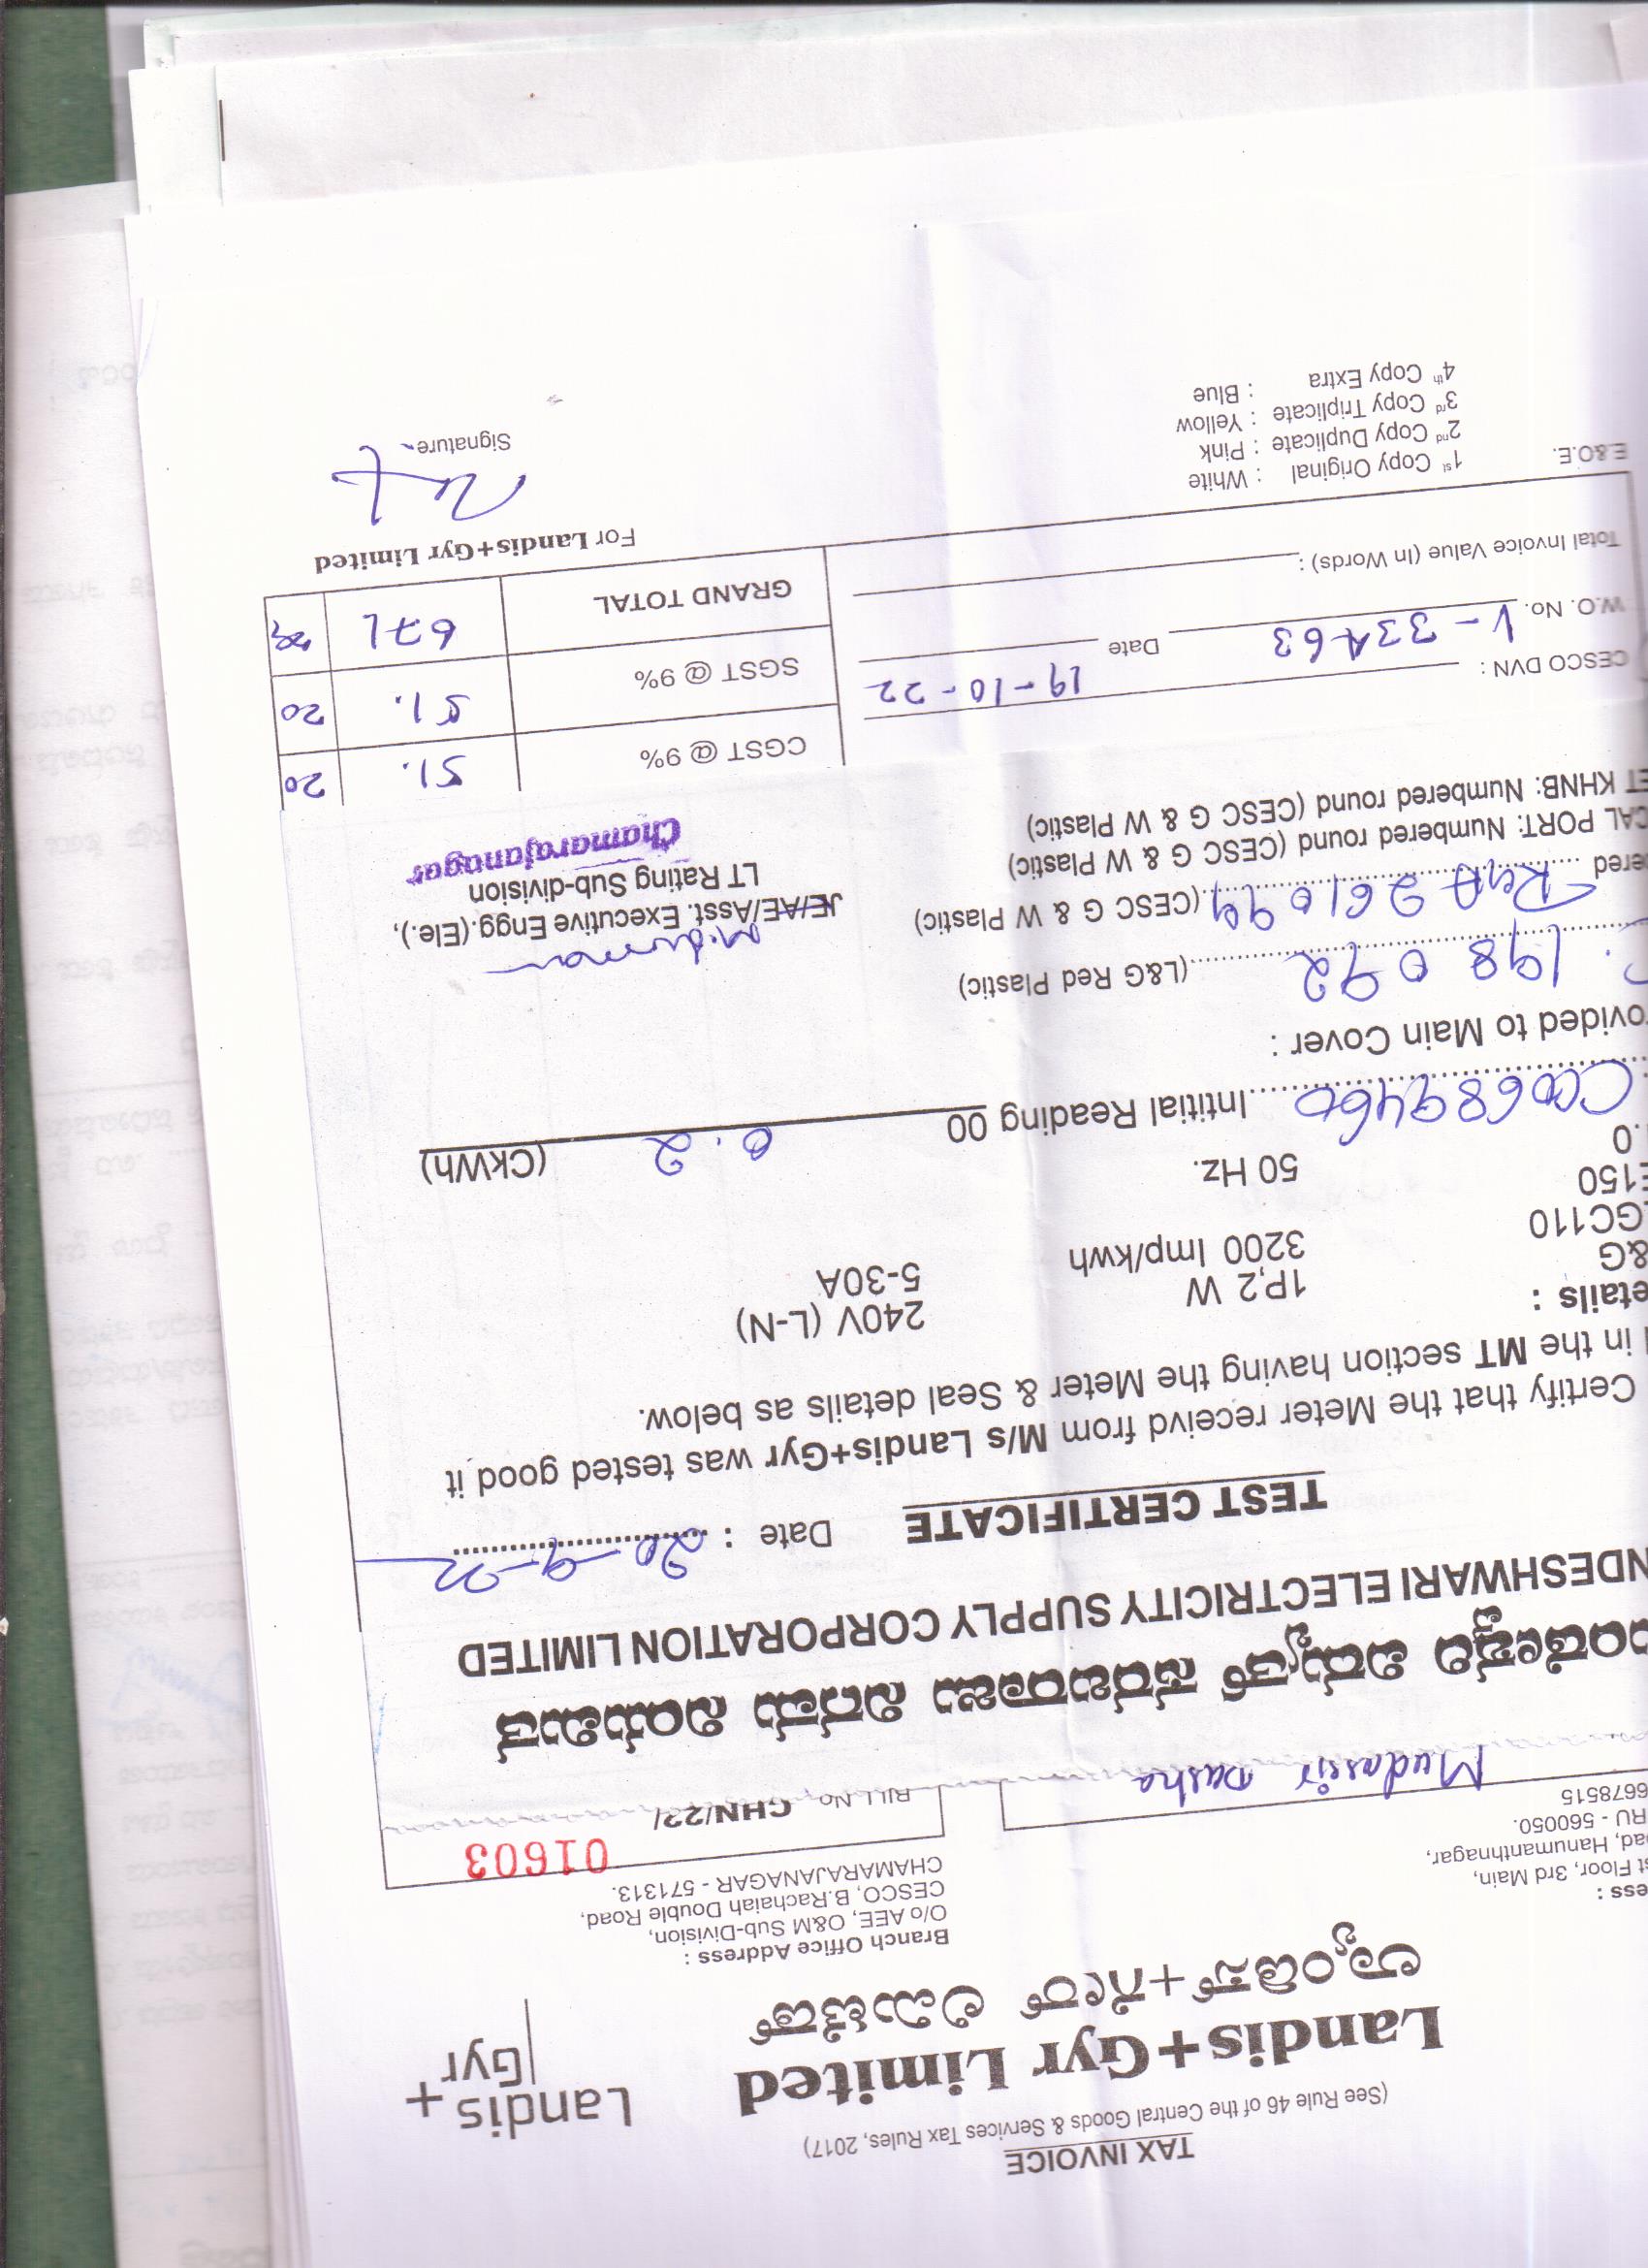 TAX INVOICE
(See Rule 46 of the Central Goods & Services Tax Rules, 2017)
Landis+Gyr Limited
ಲ್ಯಾಂಡಿಸ್+ಗೀರ್ ಲಿಮಿಟೆಡ್
Landis+
Gyr
ess :
st Floor, 3rd Main,
oad, Hanumanthnagar,
RU - 560050.
6678515
Branch Office Address :
O/o AEE, O&M Sub-Division,
CESCO, B.Rachaiah Double Road,
CHAMARAJANAGAR - 571313.
Mudassir Pasha
BILL No. CHN/22/
01603
ಂಡೇಶ್ವರಿ ವಿದ್ಯುತ್ ಸರಬರಾಜು ನಿಗಮ ನಿಯಮಿತ
NDESHWARI ELECTRICITY SUPPLY CORPORATION LIMITED
TEST CERTIFICATE
Date : 20-9-22
Certify that the Meter receivd from M/s Landis+Gyr was tested good it
in the MT section having the Meter & Seal details as below.
etails :
&G 1P,2 W 240V (L-N)
GC110 3200 Imp/kwh 5-30A
E150
.0 50 Hz.
Intitial Reading 00 0.2 (CkWh)
ovided to Main Cover :
198092 (L&G Red Plastic)
ered 261094 (CESC G & W Plastic)
CAL PORT: Numbered round (CESC G & W Plastic)
ET KHNB: Numbered round (CESC G & W Plastic)
JE/AE/Asst. Executive Engg.(Ele.),
LT Rating Sub-division
Chamarajanagar
CGST @ 9% 51. 20
SGST @ 9% 51. 20
GRAND TOTAL 671
CESCO DVN :
W.O. No. V-33A63 Date 19-10-22
Total Invoice Value (In Words) :
For Landis+Gyr Limited
Signature
E.&O.E.
1st Copy Original : White
2nd Copy Duplicate : Pink
3rd Copy Triplicate : Yellow
4th Copy Extra : Blue